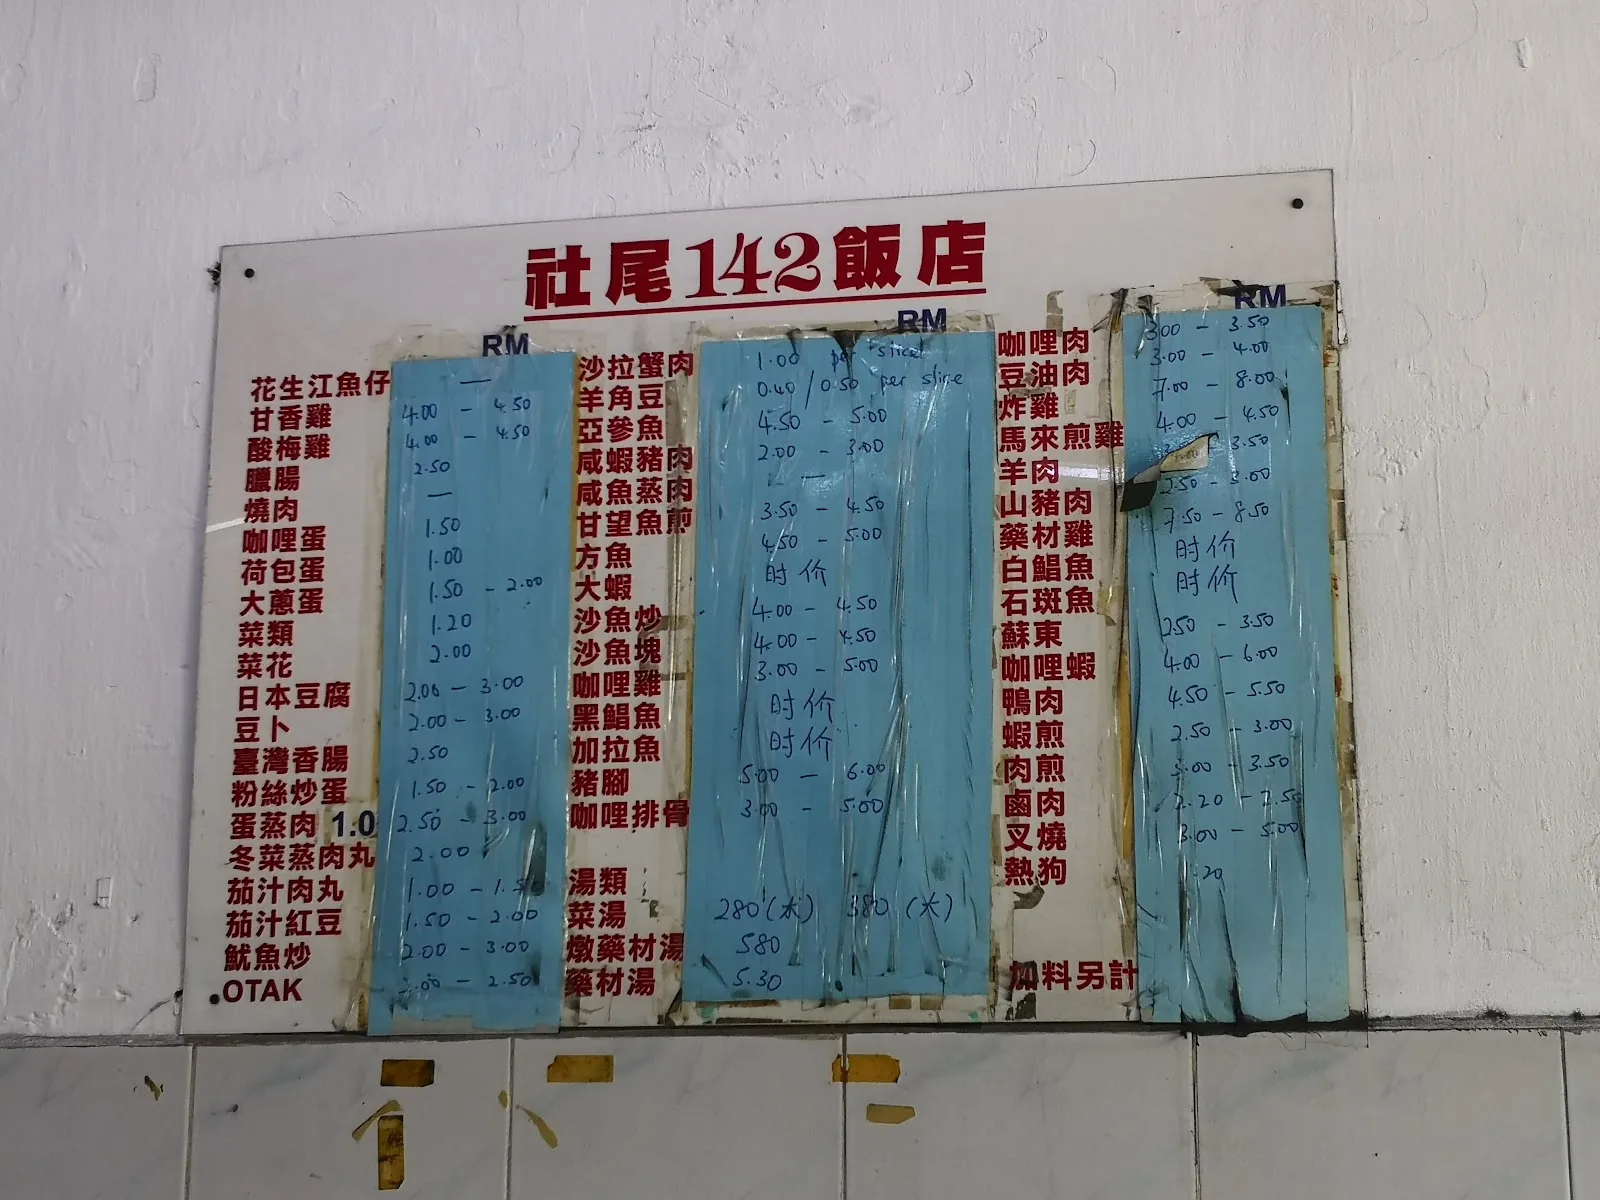 社尾142飯店
RM
花生江魚仔 —
甘香雞 4.00 - 4.50
酸梅雞 4.00 - 4.50
臘腸 2.50
燒肉 —
咖哩蛋 1.50
荷包蛋 1.00
大蔥蛋 1.50 - 2.00
菜類 1.20
菜花 2.00
日本豆腐 2.00 - 3.00
豆卜 2.00 - 3.00
臺灣香腸 2.50
粉絲炒蛋 1.50 - 2.00
蛋蒸肉 1.0 2.50 - 3.00
冬菜蒸肉丸 2.00
茄汁肉丸 1.00 - 1.50
茄汁紅豆 1.50 - 2.00
魷魚炒 2.00 - 3.00
OTAK 2.00 - 2.50
RM
沙拉蟹肉 1.00 per slice
羊角豆 0.40/0.50 per slice
亞參魚 4.50 - 5.00
咸蝦豬肉 2.00 - 3.00
咸魚蒸肉 —
甘望魚煎 3.50 - 4.50
方魚 4.50 - 5.00
大蝦 时价
沙魚炒 4.00 - 4.50
沙魚塊 4.00 - 4.50
咖哩雞 3.00 - 5.00
黑鯧魚 时价
加拉魚 时价
豬腳 5.00 - 6.00
咖哩排骨 3.00 - 5.00
湯類
菜湯 280 380 (大)
燉藥材湯 580
藥材湯 5.30
RM
咖哩肉 3.00 - 3.50
豆油肉 3.00 - 4.00
炸雞 7.00 - 8.00
馬來煎雞 4.00 - 4.50
羊肉 - 3.50
山豬肉 2.50 - 3.00
藥材雞 7.50 - 8.50
白鯧魚 时价
石斑魚 时价
蘇東 250 - 3.50
咖哩蝦 4.00 - 6.00
鴨肉 4.50 - 5.50
蝦煎 2.50 - 3.00
肉煎 3.00 - 3.50
鹵肉 2.20 - 2.50
叉燒 3.00 - 5.00
熱狗 .20
加料另計